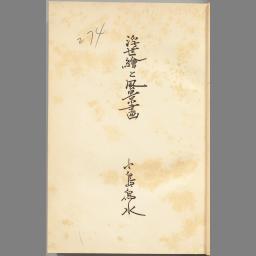 274
浮世繪と風景画
小島烏水